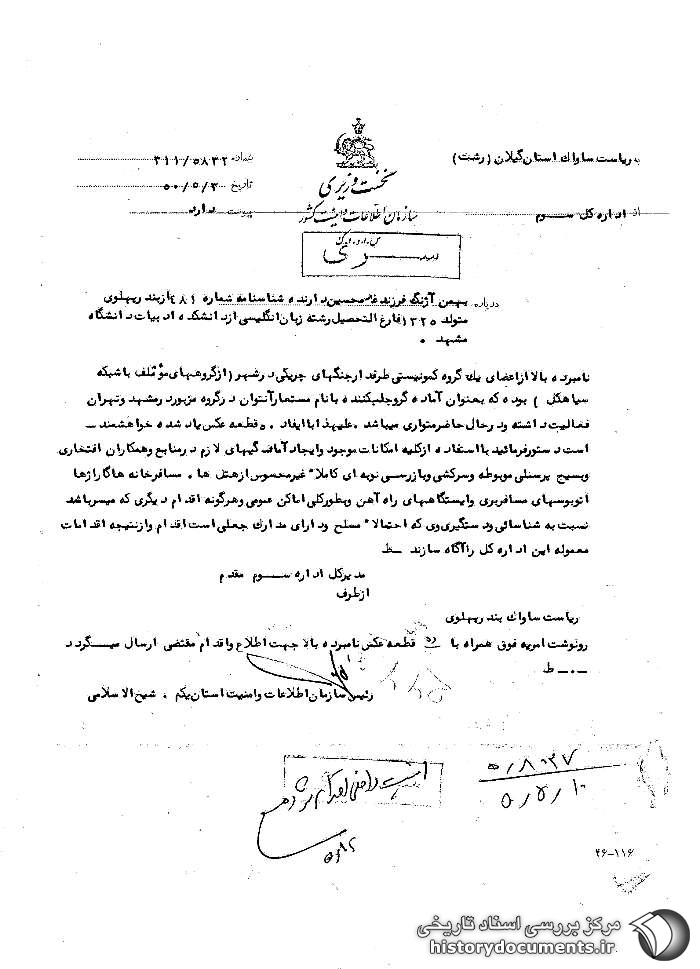 به ریاست ساواك استان گیلان (رشت)
شماره ۳۱۱/۵۸۳۲
نخست وزیری
تاریخ ۵۰/۵/۳
سازمان اطلاعات و امنیت کشور
از اداره کل ســـوم
پیوست دارد
ســـری
درباره بهمن آژنگ فرزند غلامحسین دارنده شناسنامه شماره ۴۸۱ از بندرپهلوی
متولد ۱۳۲۵ فارغ التحصیل رشته زبان انگلیسی ازدانشکده ادبیات دانشگاه
مشهد ۰
نامبرده بالا ازاعضای یك گروه کمونیستی طرفدارجنگهای چریکی درشهر (ازگروههای مؤتلف باشبکه
سیاهکل ) بوده که بعنوان آماده گروجلبکننده بانام مستعارآنتوان درگروه مزبوردرمشهد وتهران
فعالیت داشته ودرحال حاضرمتواری میباشد .علیهذا باایفاد ۵۰ قطعه عکس یاد شده خواهشمند
است دستورفرمائید بااستفاده ازکلیه امکانات موجود وایجاد آمادگیهای لازم درمنابع وهمکاران افتخاری
وبسیج پرسنلی مربوطه وسرکشی وبازرسی نوبه ای کاملا" غیرمحسوس ازهتل ها ، مسافرخانه هاگاراژها
اتوبوسهای مسافربری وایستگاههای راه آهن وبطورکلی اماکن عمومی وهرگونه اقدام دیگری که میسرباشد
نسبت به شناسائی ودستگیری وی که احتمالا" مسلح ودارای مدارك جعلی است اقدام وازنتیجه اقدامات
معموله این اداره کل راآگاه سازند ـ ط
مدیرکل اداره ســـوم مقدم
ازطرف
ریاست ساواك بندرپهلوی
رونوشت امریه فوق همراه با قطعه عکس نامبرده بالا جهت اطلاع واقدام مقتضی ارسال میگردد
ـ.ـ ط
رئیس سازمان اطلاعات وامنیت استان یکم . شیخ الاسلامی
۵/۸۰۳۷
۵۰/۵/۱۰
۲۶-۱۱۶
مرکز بررسی اسناد تاریخی
historydocuments.ir